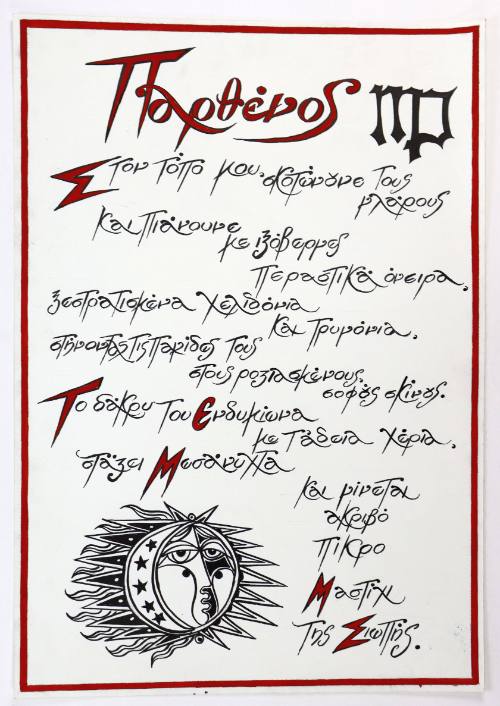 Παρθένος
Στον τόπο μου, σκοτώνουνε τους
γλάρους
και πιάνουνε
με ξόβεργες
περαστικά όνειρα,
ξεστρατισμένα χελιδόνια
και τρυγόνια,
στήνοντας τις παγίδες τους
στους ροζιασμένους,
σοφούς σκίνους.
Το δάκρυ του Ενδυμίωνα
με τ' άδεια χέρια,
στάζει Μεσάνυχτα
και γίνεται
ακριβό
πικρό
Μαστίχι
της Σιωπής.